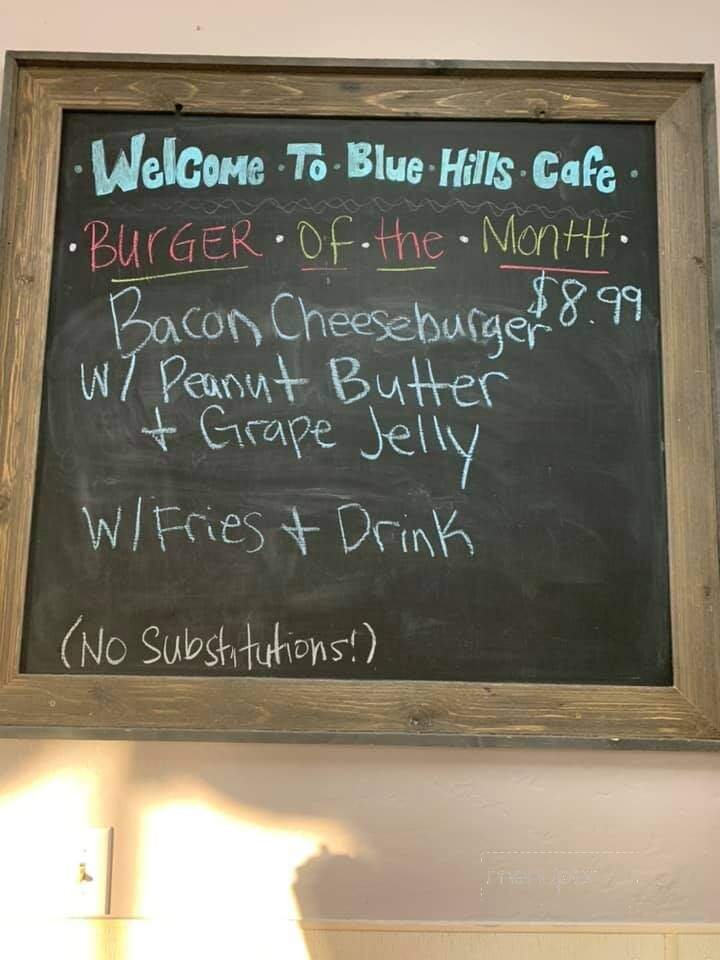 · Welcome · To · Blue · Hills · Cafe ·
· BurGER · Of · the · Month ·
Bacon Cheeseburger $8.99
w/ Peanut Butter
+ Grape Jelly
W/Fries + Drink
(No Substitutions!)
menupix